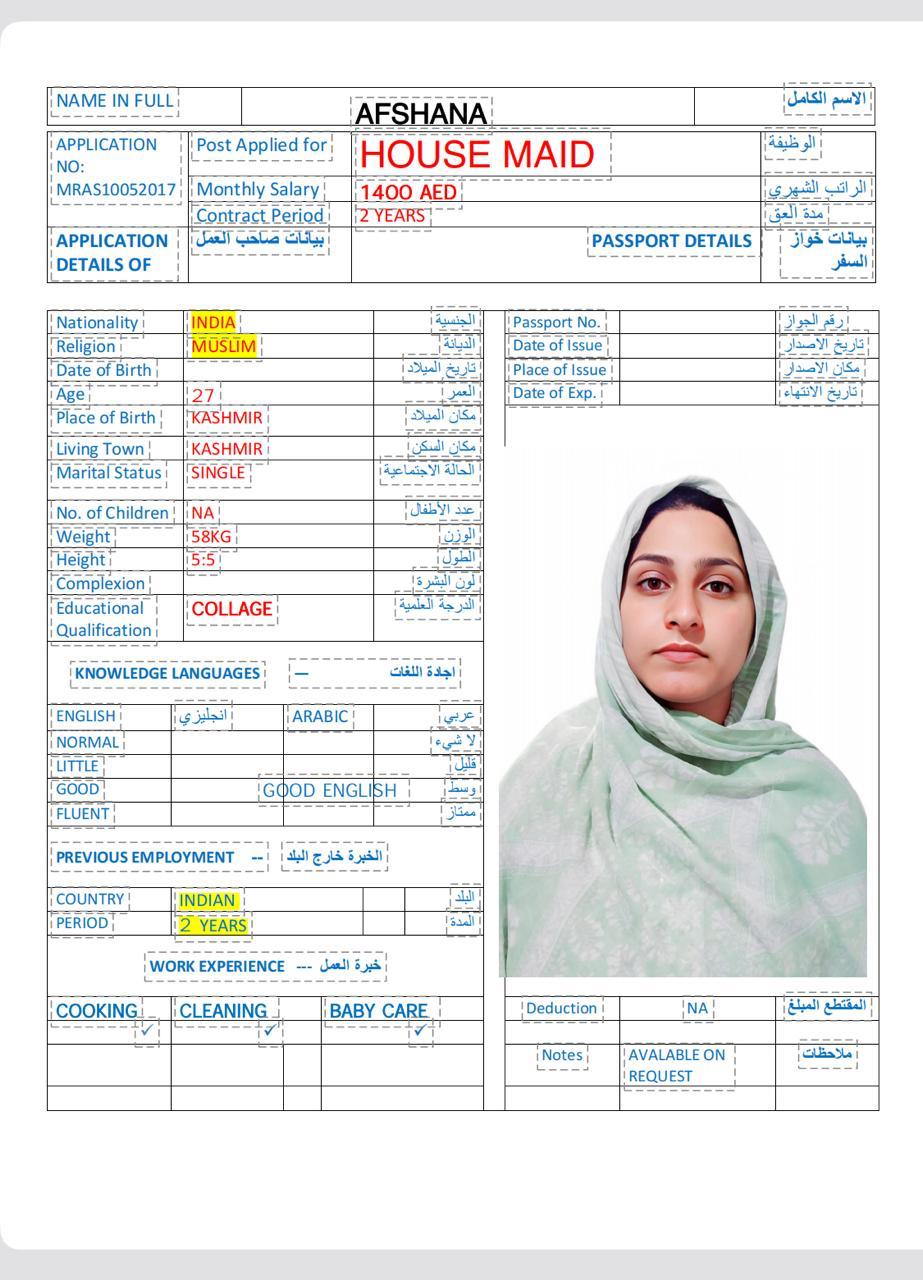 NAME IN FULL AFSHANA الاسم الكامل
APPLICATION NO: MRAS10052017
Post Applied for HOUSE MAID الوظيفة
Monthly Salary 1400 AED الراتب الشهري
Contract Period 2 YEARS مدة العق
APPLICATION DETAILS OF بيانات صاحب العمل PASSPORT DETAILS بيانات خواز السفر
Nationality INDIA الجنسية
Religion MUSLIM الديانة
Date of Birth تاريخ الميلاد
Age 27 العمر
Place of Birth KASHMIR مكان الميلاد
Living Town KASHMIR مكان السكن
Marital Status SINGLE الحالة الاجتماعية
No. of Children NA عدد الأطفال
Weight 58KG الوزن
Height 5:5 الطول
Complexion لون البشرة
Educational Qualification COLLAGE الدرجة العلمية
Passport No. رقم الجواز
Date of Issue تاريخ الاصدار
Place of Issue مكان الاصدار
Date of Exp. تاريخ الانتهاء
KNOWLEDGE LANGUAGES — اجادة اللغات
ENGLISH انجليزي ARABIC عربي
NORMAL لا شيء
LITTLE قليل
GOOD GOOD ENGLISH وسط
FLUENT ممتاز
PREVIOUS EMPLOYMENT -- الخبرة خارج البلد
COUNTRY INDIAN البلد
PERIOD 2 YEARS المدة
WORK EXPERIENCE --- خبرة العمل
COOKING CLEANING BABY CARE
✓ ✓ ✓
Deduction NA المقتطع المبلغ
Notes AVALABLE ON REQUEST ملاحظات